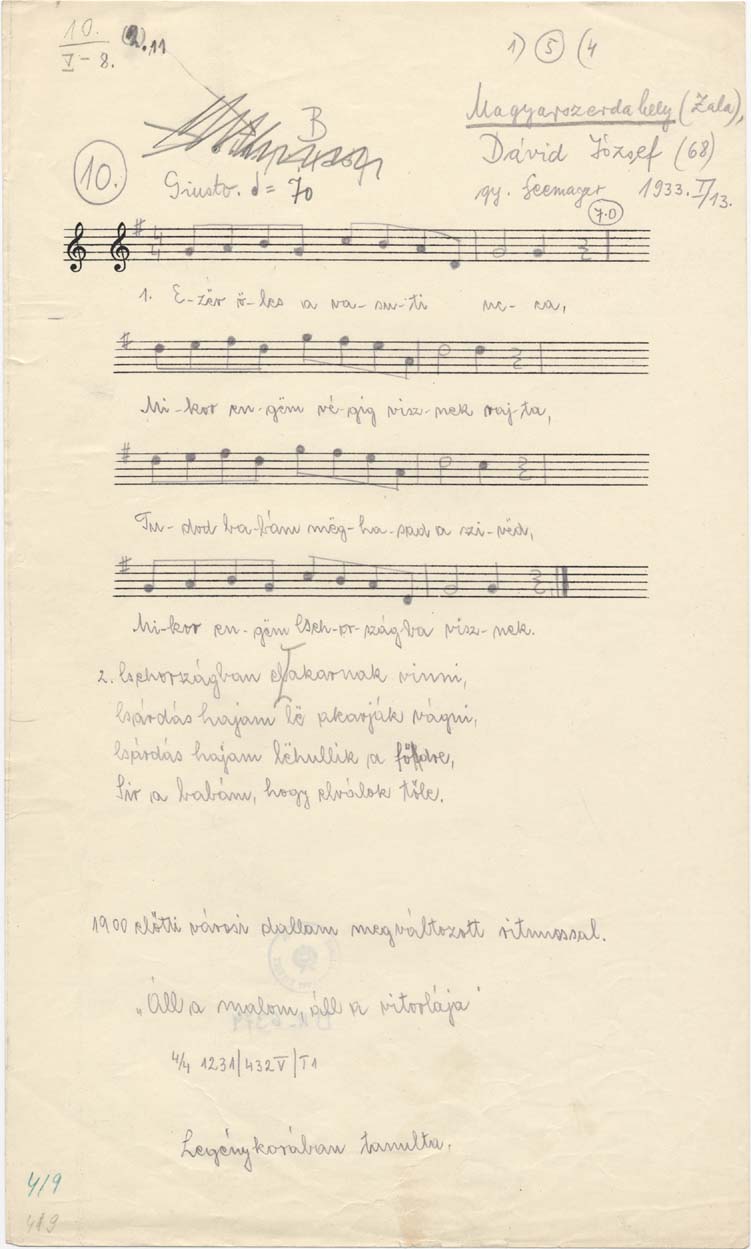 10.
V-8.
(2).11
1) 5 (4
Magyarszerdahely (Zala),
B
Dávid József (68)
10.
Giusto. = 70
gy. Seemayer 1933. II/13.
7.0
1. E-zër ö-les a va-su-ti uc-ca,
Mi-kor en-gëm vé-gig visz-nek raj-ta,
Tu-dod ba-bám mëg-ha-sad a szi-vëd,
Mi-kor en-gëm Cseh-or-szágba visz-nek.
2. Csehországban akarnak vinni,
Csárdás hajam lë akarják vágni,
Csárdás hajam lëhullik a födre,
Sir a babám, hogy elválok tőle.
1900 előtti városi dallam megváltozott ritmussal.
"Áll a malom, áll a vitorlája"
4/4 1231|432V|T1
Legénykorában tanulta.
4/9
419